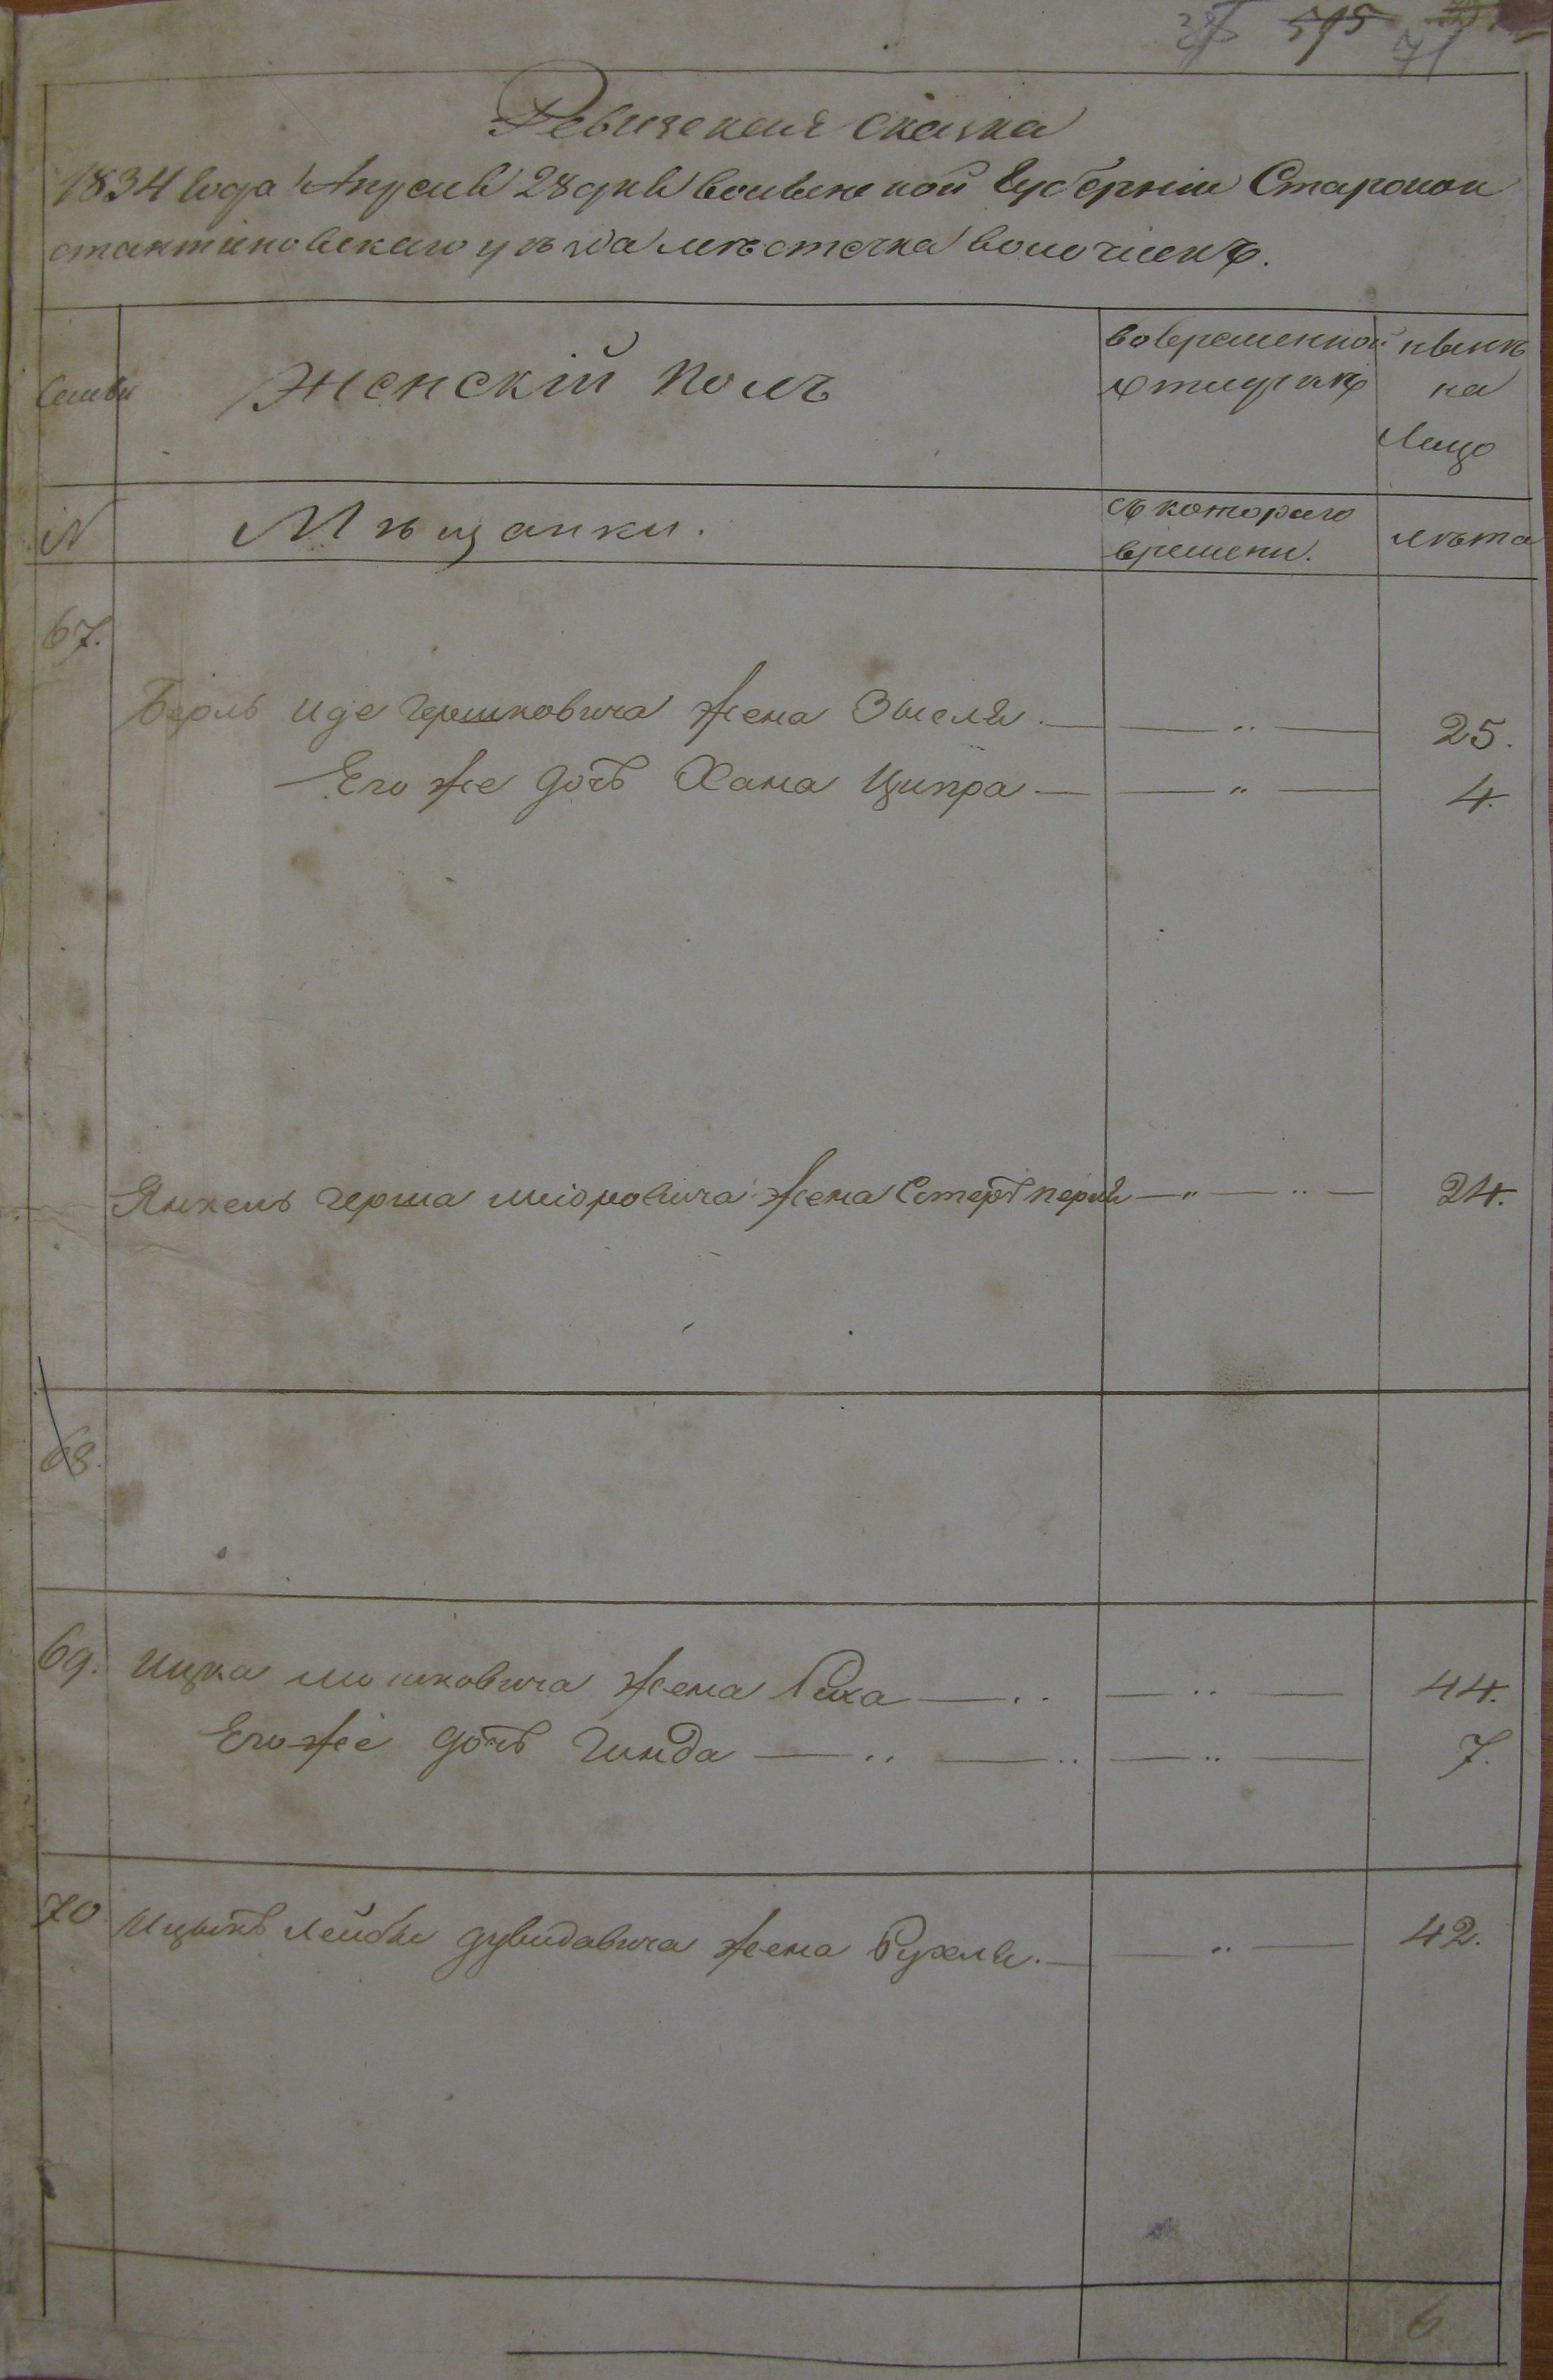 575
71
Ревизская сказка
1834 года Апреля 28 дня волынской Губерніи Старокон
стантиновскаго уѣзда мѣстечка волочискъ.
Семьи
Женскій Полъ
во временной
отлучкѣ
нынѣ
на
Лицо
N
Мѣщанки.
съ котораго
времени.
лѣта
67.
Берль Иде Гершковича жена Зыселя. — — " — 25.
Его же дочь Хана Ципра — — " — 4.
Янкель Герша жена Стеръ перля — " — " — 24.
68.
69. Ицка мошковича жена Рика — " — " — 44.
Его же дочь Гинда — " — " — " — 7.
70 Ицыкъ Лейбы дувидавича жена Рухля. — — " — 42.
6